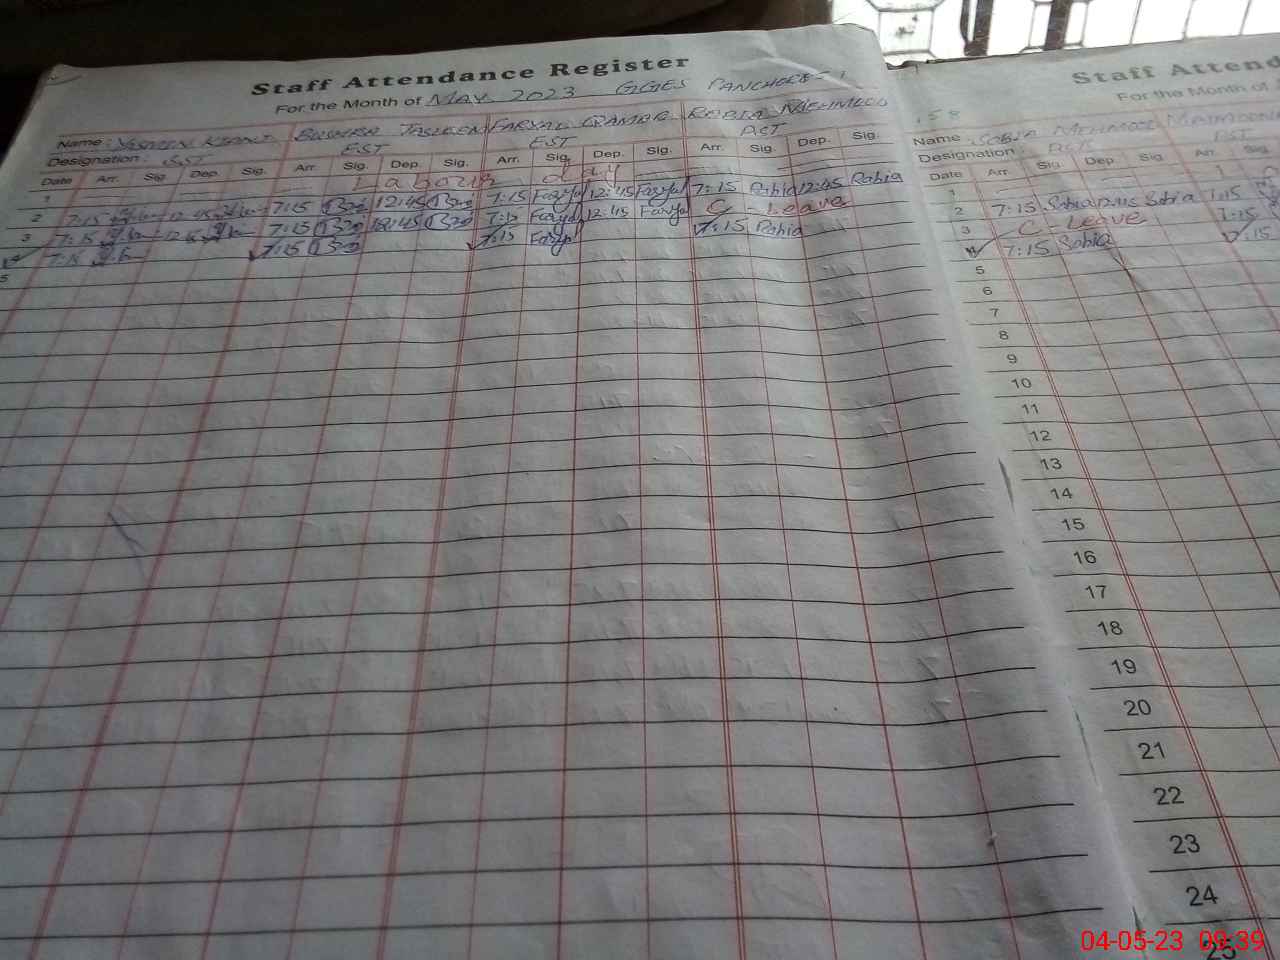 Staff Attendance Register
For the Month of MAY 2023 GGES
Name : BUSHRA TASLEEM FARYAL QAMAR RABIA MEHMOOD
Designation : SST EST EST PST
Date Arr. Sig. Dep. Sig. Arr. Sig. Dep. Sig. Arr. Sig. Dep. Sig. Arr. Sig. Dep. Sig.
1 Labour day
2 7:15 12:45 7:15 12:45 7:15 Faryal 12:45 Faryal 7:15 Rabia 12:45 Rabia
3 7:15 12:45 7:15 12:45 7:15 Faryal 12:45 Faryal C - Leave
4 7:15 7:15 7:15 Faryal 7:15 Rabia
5
Staff Attend
For the Month of
158
Name : SOBIA MEHMOOD
Designation : PST PST
Date Arr. Sig. Dep. Sig. Arr. Sig.
1
2 7:15 Sobia 12:45 Sobia 7:15
3 C - Leave 7:15
4 7:15 Sobia 7:15
5
6
7
8
9
10
11
12
13
14
15
16
17
18
19
20
21
22
23
24
25
04-05-23 09:39